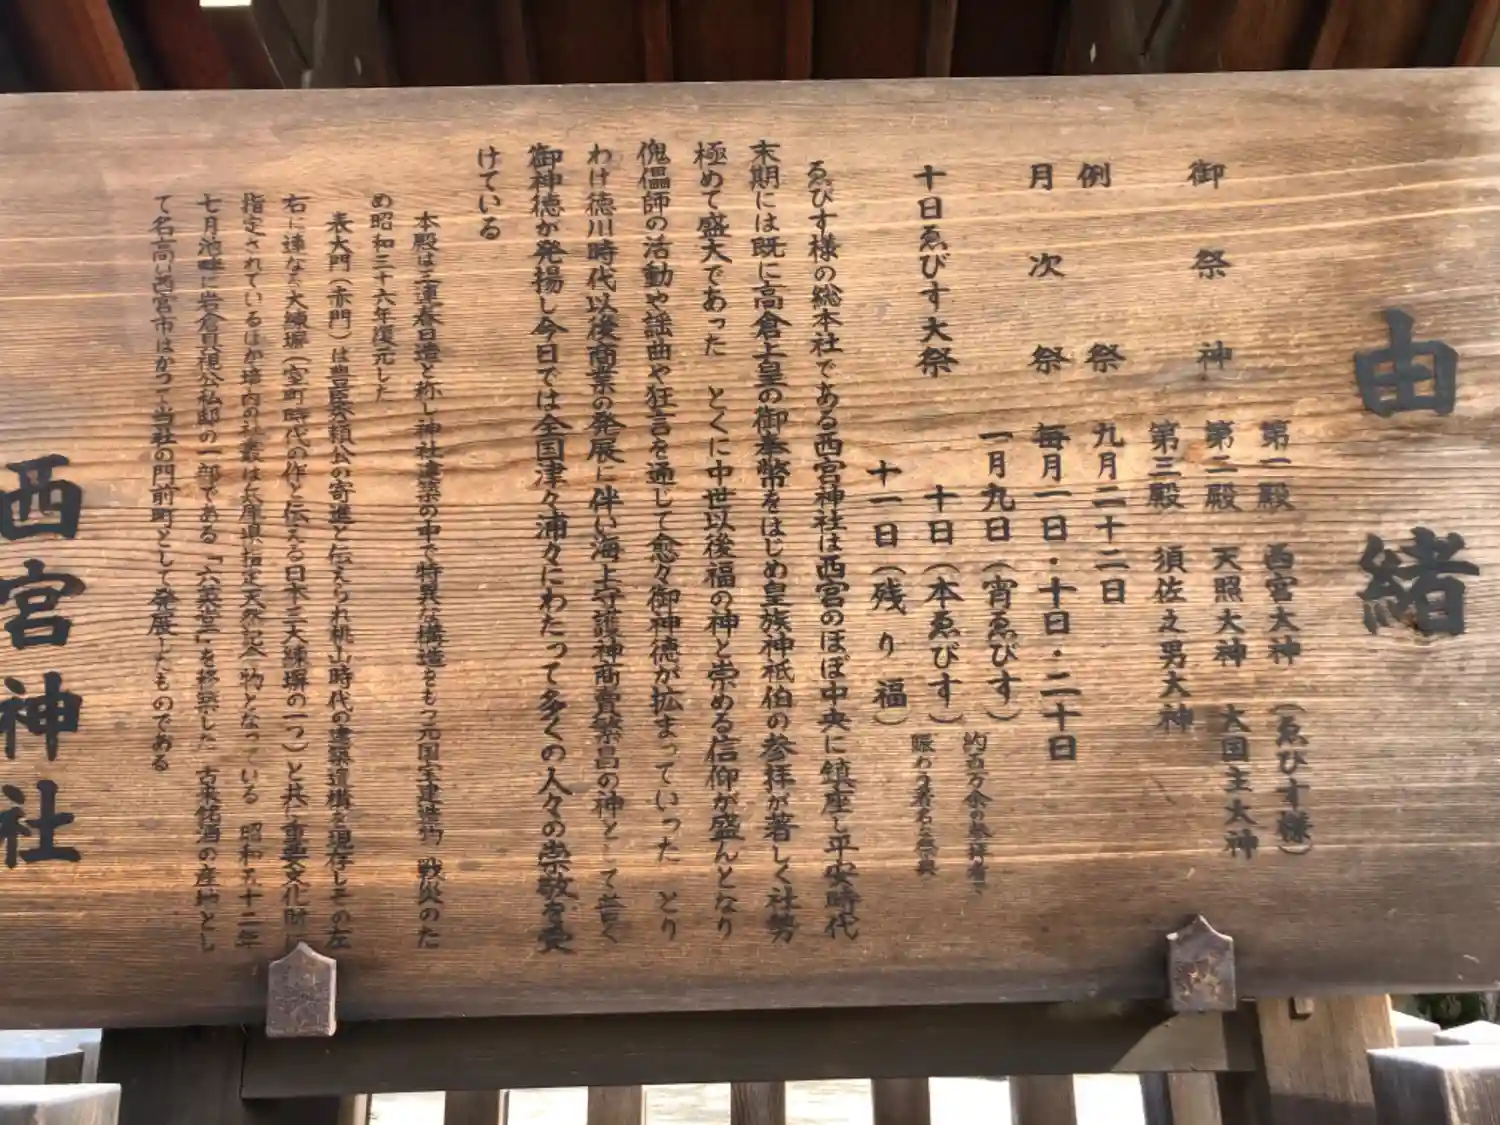 由緒
御祭神
第一殿 西宮大神(ゑびす様)
第二殿 天照大神 大国主大神
第三殿 須佐之男大神
例祭 九月二十二日
月次祭 毎月一日・十日・二十日
十日ゑびす大祭
一月九日(宵ゑびす)
十日(本ゑびす)
十一日(残り福)
約百万余の参拝者で
賑わう著名な祭典
ゑびす様の総本社である西宮神社は西宮のほぼ中央に鎮座し平安時代
末期には既に高倉上皇の御奉幣をはじめ皇族神祇伯の参拝が著しく社勢
極めて盛大であった とくに中世以後福の神と崇める信仰が盛んとなり
傀儡師の活動や謡曲や狂言を通じて愈々御神徳が拡まっていった とり
わけ徳川時代以後商業の発展に伴い海上守護神商賣繁昌の神として普く
御神徳が発揚し今日では全国津々浦々にわたって多くの人々の崇敬を受
けている
本殿は三連春日造と称し神社建築の中で特異な構造をもつ元国宝建造物 戦災のた
め昭和三十六年復元した
表大門(赤門)は豊臣秀頼公の寄進と伝えられ桃山時代の建築遺構を現存しその左
右に連なる大練塀(室町時代の作と伝える日本三大練塀の一つ)と共に重要文化財に
指定されているほか境内の社叢は兵庫県指定天然記念物となっている 昭和五十二年
七月池畔に岩倉具視公私邸の一部である「六英堂」を移築した 古来銘酒の産地とし
て名高い西宮市はかつて当社の門前町として発展したものである
西宮神社